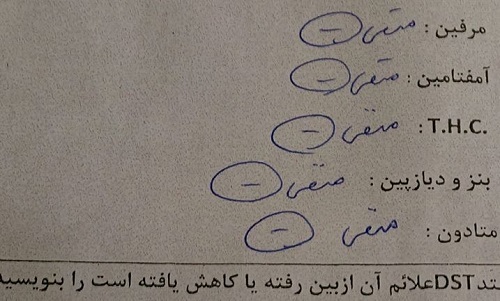 مرفین : منفی (-)
آمفتامین : منفی (-)
T.H.C. : منفی (-)
بنز و دیازپین : منفی (-)
متادون : منفی (-)
تند DST علائم آن ازبین رفته یا کاهش یافته است را بنویسید